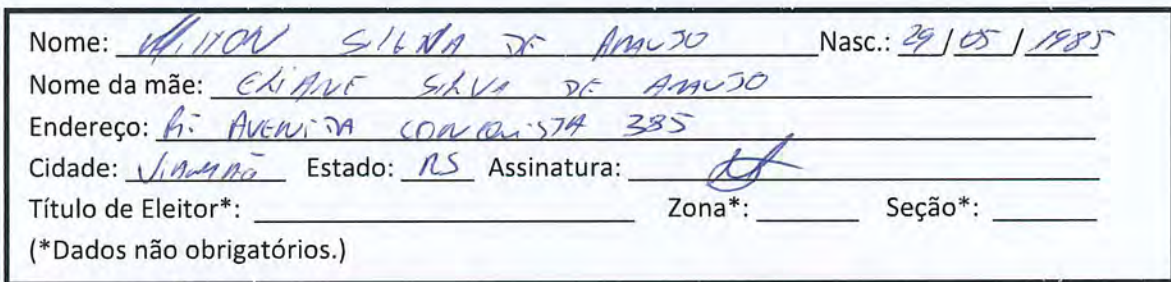 Nome: SILVA DE ARAUJO Nasc.: 29/05/1985
Nome da mãe: ELIANE SILVA DE ARAUJO
Endereço: AVENIDA CONQUISTA 385
Cidade: Viamão Estado: RS Assinatura:
Título de Eleitor*: Zona*: Seção*:
(*Dados não obrigatórios.)